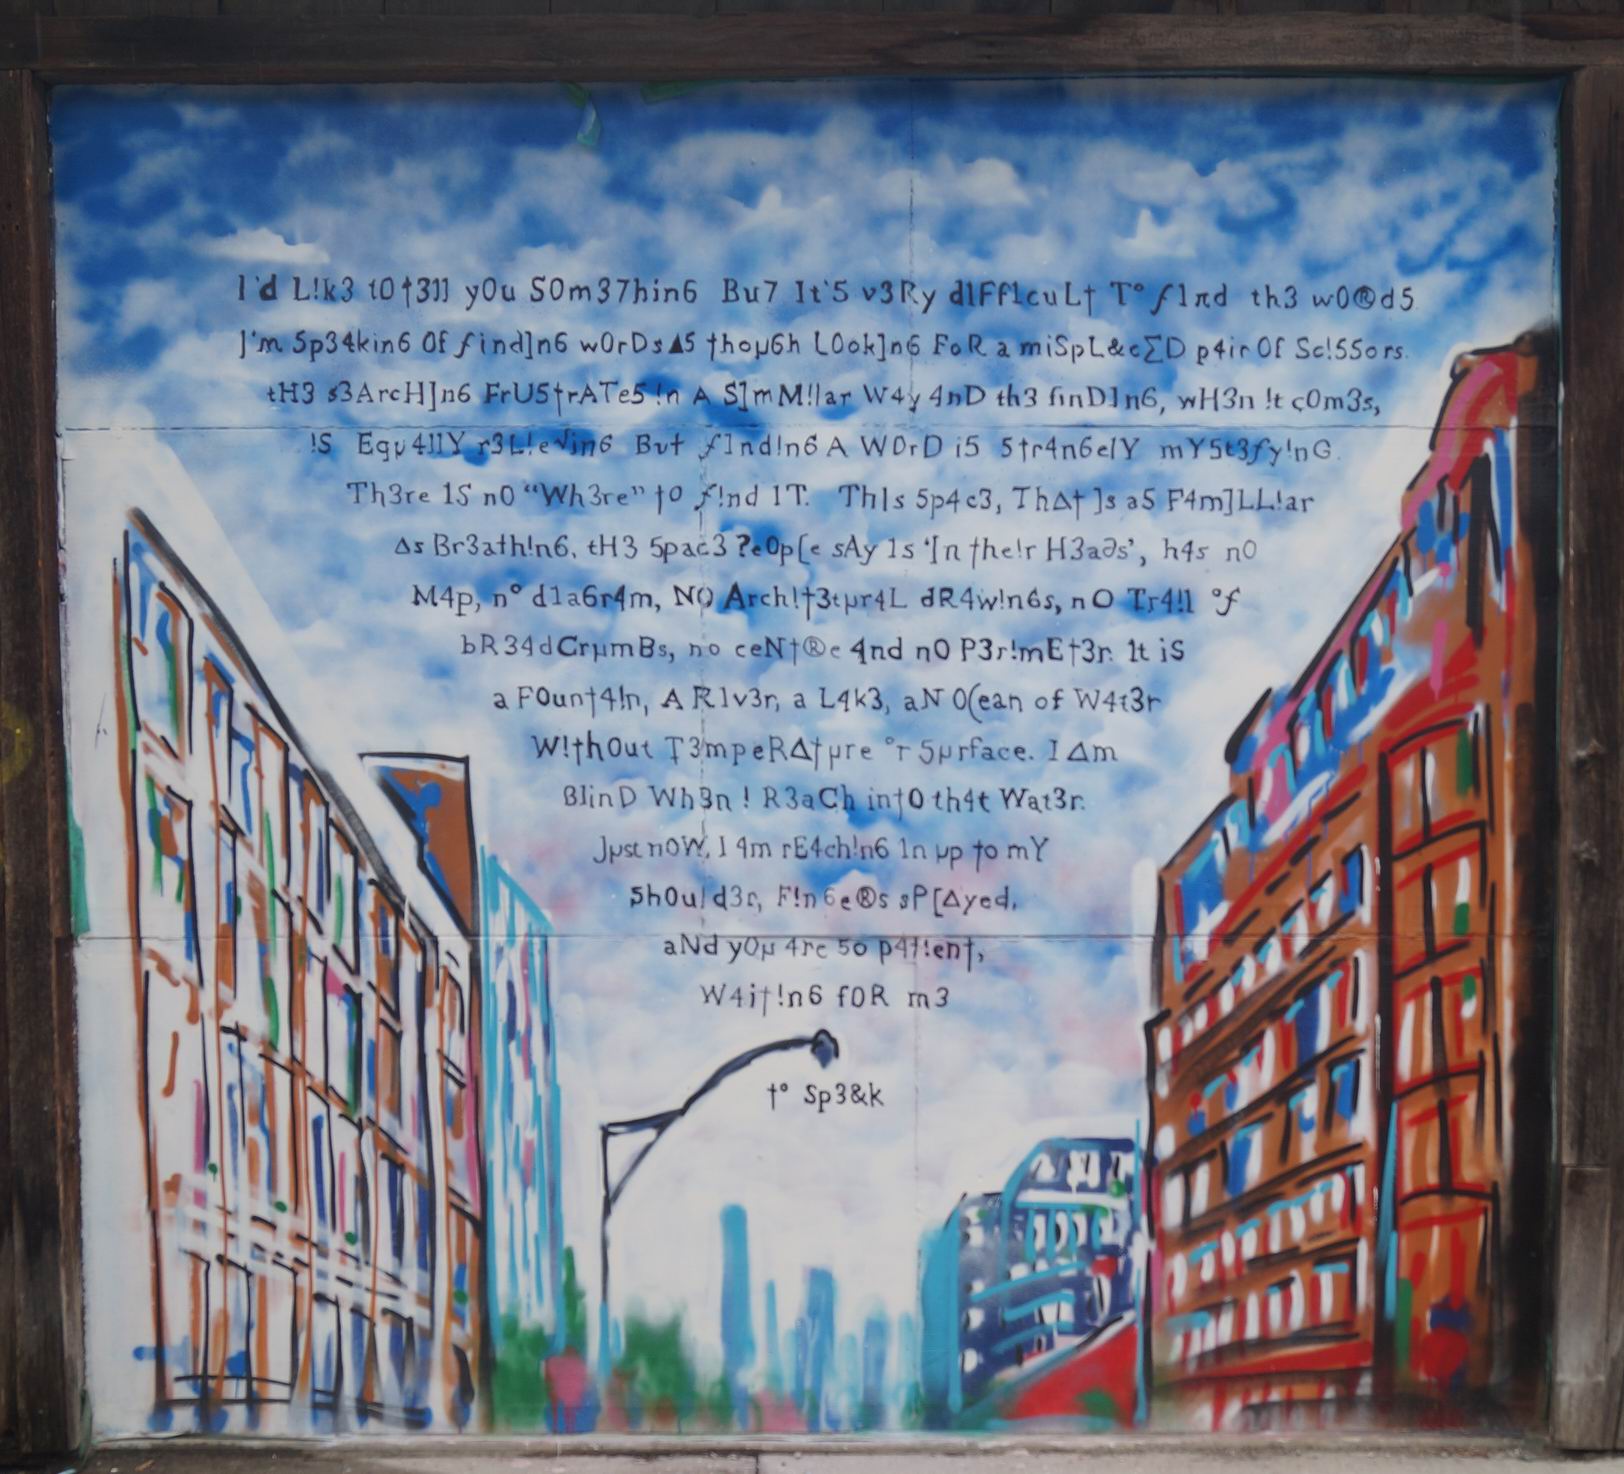 I'd L!k3 t0 †3ll y0u S0m37hin6 Bu7 It'5 v3Ry d1Ff1cuL† T° ƒ1nd th3 w0®d5
I'm 5p34kin6 Of ƒind]n6 w0rDs ▲5 †hoµ6h L0ok]n6 FoR a miSpL&c∑D p4ir Of Sc!55ors.
tH3 s3ArcH]n6 FrU5†rATe5 !n A S]mM!lar W4y 4nD th3 finD]n6, wH3n !t c0m3s,
!S Equ4llY r3L!e√in6 But ƒ1nd!n6 A W0rD i5 5tr4n6elY mY5t3fy!nG.
Th3re 1S n0 “Wh3re” †o ƒ!nd 1T. Th1s 5p4c3, Th∆† ]s a5 F4m]LL!ar
∆s Br3ath!n6, tH3 5pac3 ?e0p[e sAy 1s ‘[n the!r H3a∂s’, h4s n0
M4p, n° d1a6r4m, NO Arch!†3tµr4L dR4w!n6s, nO Tr4!l °ƒ
bR34dCrµmBs, no ceN†®e 4nd n0 P3r!mE†3r. 1t iS
a F0un†4!n, A R1v3r, a L4k3, aN O(ean of W4t3r
W!†hOut T3mpeR∆†µre °r 5µrface. I ∆m
BlinD Wh3n ! R3aCh in†0 th4t Wat3r.
Jµst n0W, I 4m rE4ch!n6 1n µp †o mY
5h0uld3r, F!n6e®s sP[∆yed,
aNd y0µ 4re 5o p4†!en†,
W4i†!n6 f0R m3
†° Sp3&k